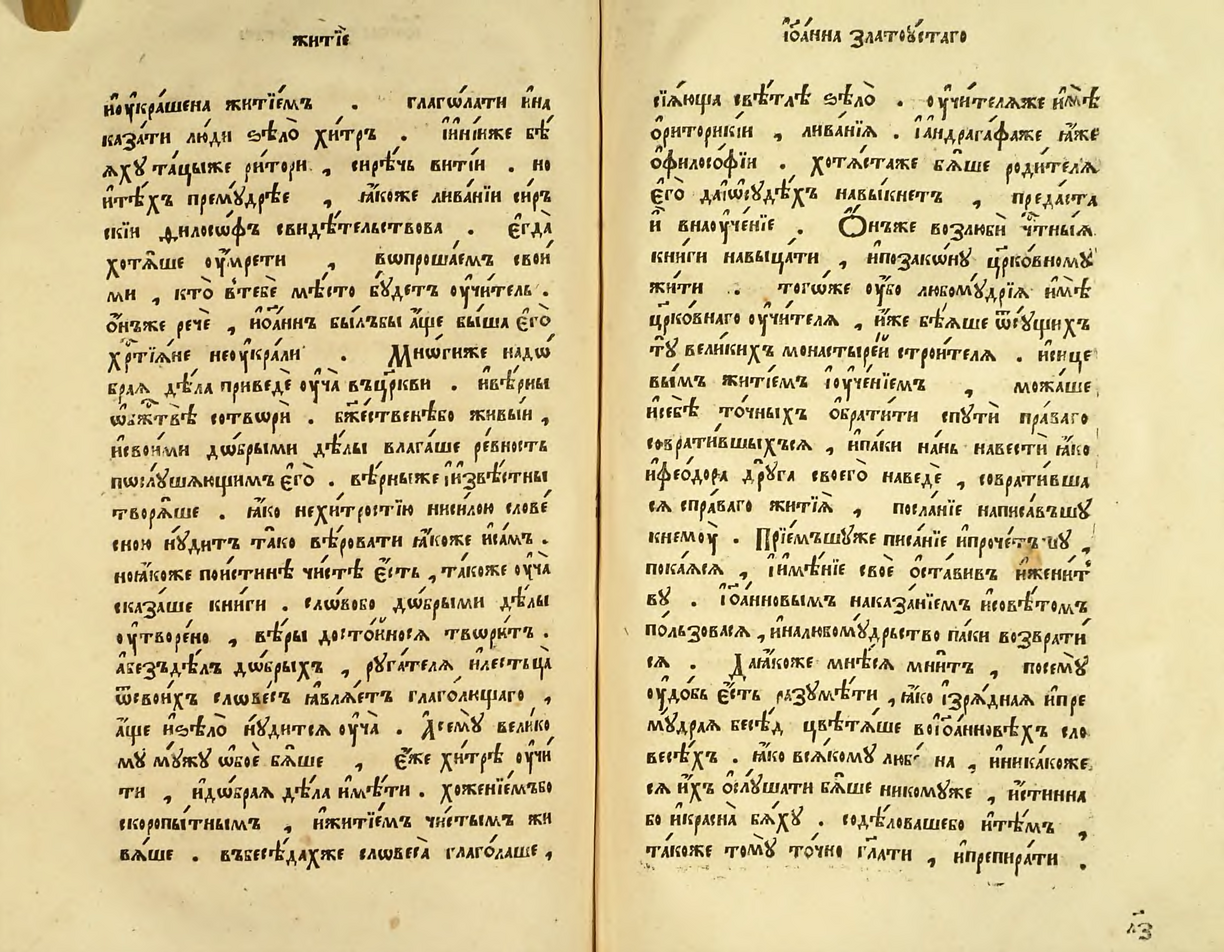 житїе
иоукра́шена житїемъ . глаголати и́на
каза́ти люди ѕѣло̀ хи́тръ . и҆ніиже бѣ́
ѧху та́цыже ри́тори , сирѣчь вити́и . но
и҆тѣ́хъ премꙋ́дрѣе , ꙗ҆коже лива́нїи си́ръ
скїи ѳилосо́фъ свидѣ́тельствова . є҆гда̀
хотѧ́ше оу҆мрети , вопроша́емъ свои́
ми , кто̀ в̾тебѐ мѣ́сто бꙋ́детъ оу҆чи́тель .
ѻ҆́нъже речѐ , и҆ѡа́ннъ бы́лъбы а҆́ще бы́ша є҆го̀
хрⷭ҇тїѧ́не неоукра́ли . Мнѡ́гиже надѡ́
браѧ дѣ́ла приведѐ оу҆ча̀ въцр҃кви . и҆вѣ́рны
ѡ҆бжⷭ҇твѣ̀ сотворѝ . бж҃е́ственѣбо живы́и ,
и҆свои́ми дѡ́брыми дѣ́лы влага́ше ре́вность
послꙋ́шающимъ є҆го̀ . вѣ́рныже и҆звѣ́стны
творѧ́ше . ꙗ҆́ко нехи́тростїю ниси́лою слове́
сною нꙋ́дитъ та́ко вѣ́ровати ꙗ҆́коже и҆са́мъ .
ноꙗ҆́коже пои́стинѣ чи́стѣ є҆́сть , та́коже оу҆ча̀
сказа́ше кни́ги . сло́вобо дѡ́брыми дѣ́лы
оу҆творе́но , вѣ́ры досто́йносѧ твори́тъ .
а҆безъдѣ́лъ дѡ́брыхъ , рꙋга́телѧ и҆лестьца̀
ѿсвои́хъ слове́съ ꙗ҆влѧ́етъ глаго́лющаго ,
а҆́ще и҆ѕѣло̀ нꙋ́дитсѧ оу҆ча̀ . А҆семꙋ̀ вели́ко
мꙋ мꙋ́жꙋ ѻ҆бо́е бѧ́ше , є҆́же хи́трѣ оу҆чи́
ти , и҆дѡ́браѧ дѣ́ла и҆мѣ́ти . хоженїемъбо
скоропы́тнымъ , и҆житїе́мъ чи́стымъ жи
вѧ́ше . въбесѣ́дахже словеса̀ глаго́лаше ,
їѡа́нна златоꙋ́стаго
сїѧ́юща свѣ́тлѣ ѕѣло̀ . оу҆чи́телѧже и҆мѣ̀
ѻ҆ритори́кїи , лива́нїѧ . і҆андрага́фаже ꙗ҆́же
ѻ҆филосо́фїи . хотѧ́стаже бѧ́ше роди́телѧ
є҆го̀ да́иѡсꙋдѣ́хъ навы́кнетъ , преда́ста
и҆̀ внаоуче́нїе . Ѻ҆́нъже возлюбѝ чⷭ҇тны́ѧ
кни́ги навыца́ти , и҆позако́нꙋ цр҃ко́вномꙋ
жи́ти . тогѡ́же оу҆́бо любомꙋ́дрїѧ и҆мѣ̀
цр҃ко́внаго оу҆чи́телѧ , и҆́же бѣѧ́ше ѿсꙋ́щихъ
тꙋ̀ вели́кихъ монастыре́й строи́телѧ . и҆си́це
вымъ житїе́мъ і҆оуче́нїемъ , можа́ше
и҆себѣ̀ то́чныхъ ѻ҆брати́ти спꙋтѝ пра́ваго
соврати́вшыхъсѧ , и҆па́ки на́нь навестѝ ꙗ҆́ко
и҆ѳео́дора дрꙋ́га своего̀ наведѐ , соврати́вша
сѧ спра́ваго житїѧ̀ , посла́нїе написа́въшꙋ
кнемоу̀ . Прїе́мъшꙋже писа́нїе и҆проче́тъшꙋ ,
пока́ѧсѧ , і҆имѣ́нїе своѐ ѻ҆ста́вивъ и҆жени́т
вꙋ . І҆ѡа́нновымъ наказа́нїемъ и҆совѣ́томъ
по́льзовасѧ , и҆налюбомꙋ́дрьство па́ки возврати́
сѧ . Даꙗ҆́коже мнѣ́сѧ мни́тъ , посемꙋ̀
оу҆до́бь є҆́сть разꙋмѣ́ти , ꙗ҆́ко і҆зрѧ́днаѧ и҆пре
мꙋ́драѧ бесѣ́д цвѣтѧ́ше воі҆ѡа́нновѣхъ сло
весѣ́хъ . ꙗ҆́ко всѧ́комꙋ на , и҆ника́коже
сѧ и҆́хъ ѻ҆слꙋ́шати бѧ́ше никомꙋ́же , и҆́стинна
бо и҆красна̀ бѧ́хꙋ . содѣ́ловашебо и҆тѣ́мъ ,
та́коже томꙋ̀ то́чно гл҃ати , и҆препира́ти .
л҃з